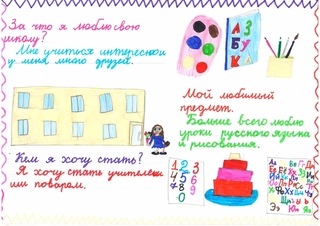 За что я люблю свою
школу?
Мне учиться интересно и
у меня много друзей.
АЗ
БУ
КА
Мой любимый
предмет.
Больше всего люблю
уроки русского языка
и рисования.
Кем я хочу стать?
Я хочу стать учителем
или поваром.
1 2 3
4 5 6
7 8 9
0